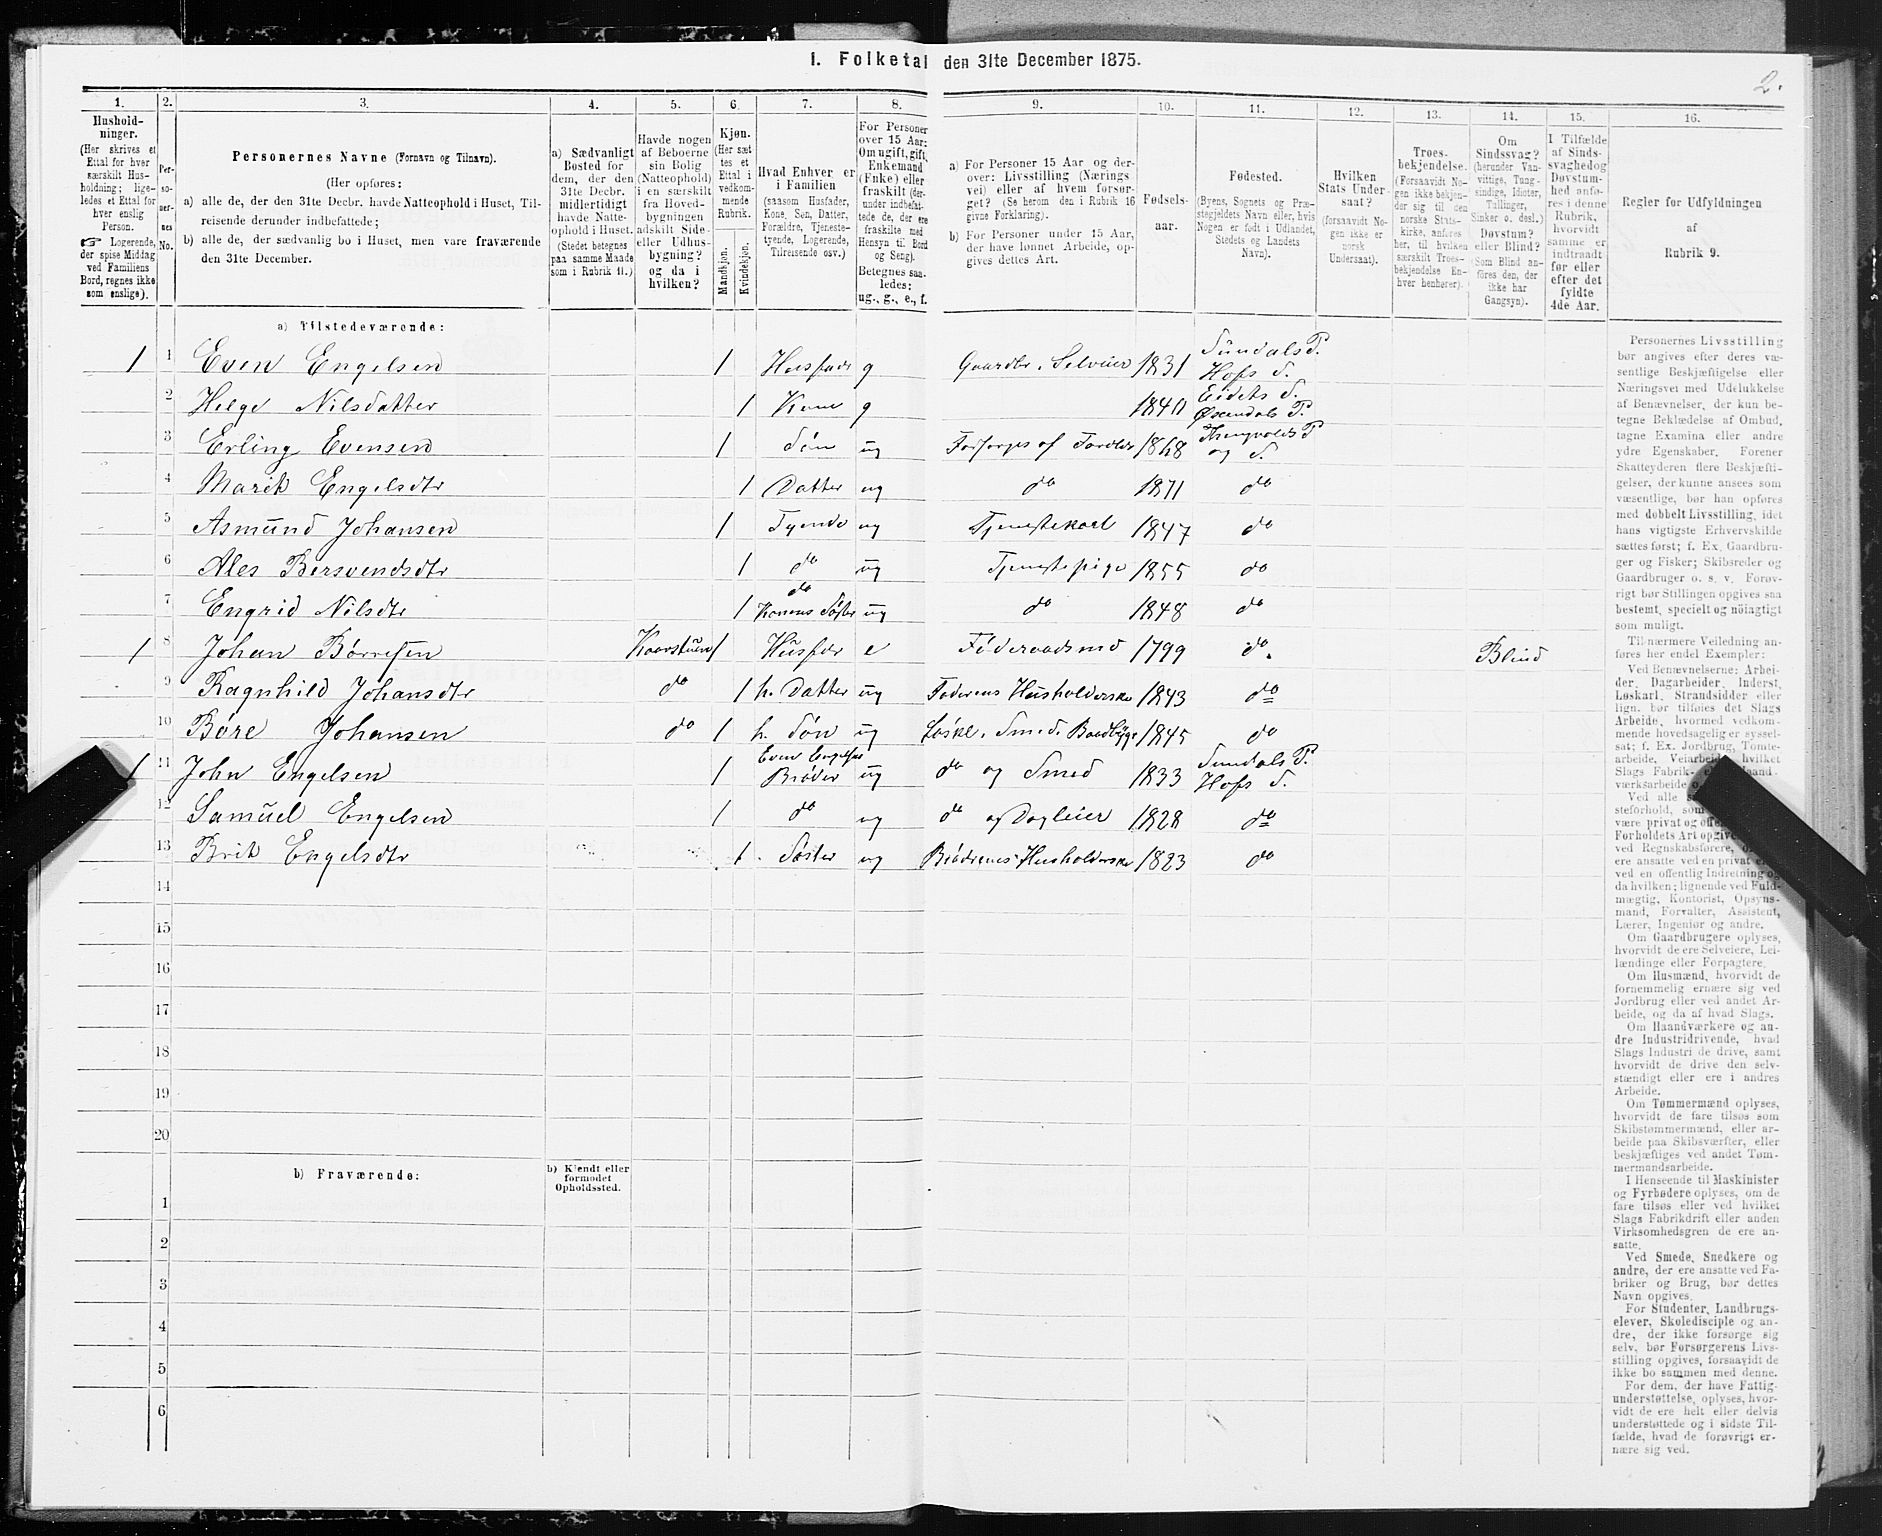 1. Folketal den 31te December 1875.
2.
1. 2. 3. 4. 5. 6. 7. 8. 9. 10. 11. 12. 13. 14. 15. 16.
Hushold-
ninger.
(Her skrives et
Ettal for hver
særskilt Hus-
holdning; lige-
ledes et Ettal for
hver enslig
Person.
Logerende,
der spise Middag
ved Familiens
Bord, regnes ikke
som enslige).
Per-
so-
ner-
nes
No.
Personernes Navne (Fornavn og Tilnavn).
(Her opføres:
a) alle de, der den 31te Decbr. havde Natteophold i Huset, Til-
reisende derunder indbefattede;
b) alle de, der sædvanlig bo i Huset, men vare fraværende
den 31te December.
a) Sædvanligt
Bosted for
dem, der den
31te Decbr.
midlertidigt
havde Natte-
ophold i Huset.
(Stedet betegnes
paa samme Maade
som i Rubrik 11.)
Havde nogen
af Beboerne
sin Bolig
(Natteophold)
i en særskilt
fra Hoved-
bygningen
adskilt Side-
eller Udhus-
bygning?
og da i
hvilken?
Kjøn.
(Her sæt-
tes et
Ettal i
vedkom-
mende
Rubrik.
Mandkjøn.
Kvindekjøn.
Hvad Enhver er
i Familien
(saasom Husfader,
Kone, Søn, Datter,
Forældre, Tjeneste-
tyende, Logerende,
Tilreisende osv.)
For Personer
over 15 Aar:
Om ugift, gift,
Enkemand
(Enke) eller
fraskilt (der-
under indbefat-
tede de, der ere
fraskilte med
Hensyn til Bord
og Seng).
Betegnes saa-
ledes:
ug., g., e., f.
a) For Personer 15 Aar og der-
over: Livsstilling (Nærings
vei) eller af hvem forsør-
get? (Se herom den i Rubrik 16
givne Forklaring).
b) For Personer under 15 Aar,
der have lønnet Arbeide, op-
gives dettes Art.
Fødsels-
aar.
Fødested.
(Byens, Sognets og Præ-
stegjeldets Navn eller, hvis
Nogen er født i Udlandet,
Stedets og Landets
Navn).
Hvilken
Stats Under-
saat?
(forsaavidt No-
gen ikke er
norsk
Undersaat).
Troes-
bekjendelse.
(Forsaavidt No-
gen ikke bekjen-
der sig til den
norske Stats-
kirke, anføres
her, til hvilken
særskilt Troes-
bekjendelse En-
hver henhører).
Om
Sindssvag?
(herunder Van-
vittige, Tung-
sindige, Idioter,
Tullinger,
Sinker o. desl.)
Døvstum?
eller Blind?
(Som Blind an-
føres den, der
ikke har
Gangsyn).
I Tilfælde
af Sinds-
svaghed og
Døvstum-
hed anfø-
res i denne
Rubrik,
hvorvidt
samme er
indtraadt
før eller
efter det
fyldte
4de Aar.
Regler for Udfyldningen
af
Rubrik 9.
a) Tilstedeværende:
1 1 Even Engelsen 1 Husfader g Gaardbr. Selveier 1831 Sundals P. Hofs S.
2 Helge Nilsdatter 1 Kone g 1840 Eidets S. Øxendals P.
3 Erling Evensen 1 Søn ug Forsørges af Forældre 1868 Thingvolds P og S.
4 Marit Engelsdtr 1 Datter ug do 1871 do
5 Asmund Johansen 1 Tyende ug Tjenestekarl 1847 do
6 Ales Bersvendsdtr 1 do ug Tjenestepige 1855 do
7 Engrid Nilsdtr 1 do Konens Søster ug do 1848 do
1 8 Johan Børresen 1 Husfader e Føderaadsmd 1799 do. Blind
9 Ragnhild Johansdtr do 1 h. Datter ug Faderens Husholderske 1843 do
10 Børe Johansen do 1 h. Søn ug Løskl. Smed. Baadbyge 1845 do
1 11 John Engelsen 1 Even Engelsens Broder ug do og Smed 1833 Sundals P. Hofs S.
12 Samuel Engelsen 1 do ug do og Dagleier 1828 do
13 Brit Engelsdtr 1 Søster ug Brødrenes Husholderske 1823 do
14
15
16
17
18
19
20
b) Fraværende:
b) Kjendt eller
formodet
Opholdssted.
1
2
3
4
5
6
Personernes Livsstilling
bør angives efter deres væ-
sentlige Beskjæftigelse eller
Næringsvei med Udelukkelse
af Benævnelser, der kun be-
tegne Beklædelse af Ombud,
tagne Examina eller andre
ydre Egenskaber. Forener
Skatteyderen flere Beskjæfti-
gelser, der kunne ansees som
væsentlige, bør han opføres
med dobbelt Livsstilling, idet
hans vigtigste Erhvervskilde
sættes først; f. Ex. Gaardbru-
ger og Fisker; Skibsreder og
Gaardbruger o. s. v. Forøv-
rigt bør Stillingen opgives saa
bestemt, specielt og nøiagtigt
som muligt.
Til nærmere Veiledning an-
føres her endel Exempler:
Ved Benævnelserne: Arbei-
der, Dagarbeider, Inderst,
Løskarl, Strandsidder eller
lign. bør tilføies det Slags
Arbeide, hvormed vedkom-
mende hovedsagelig er syssel-
sat; f. Ex. Jordbrug, Tomte-
arbeide, Veiarbeide, hvilket
Slags Fabrik-
værksarbeide
Ved alle
steforhold, som
være privat og
Forholdets Art
ved Regnskabsførere,
ere ansatte ved en privat
ved en offentlig Indretning og
da hvilken; lignende ved Fuld-
mægtig, Kontorist, Opsyns-
mand, Forvalter, Assistent,
Lærer, Ingeniør og andre.
Om Gaardbrugere oplyses,
hvorvidt de ere Selveiere, Lei-
lændinge eller Forpagtere.
Om Husmænd, hvorvidt de
fornemmelig ernære sig ved
Jordbrug eller ved andet Ar-
beide, og da af hvad Slags.
Om Haandværkere og an-
dre Industridrivende, hvad
Slags Industri de drive, samt
hvorvidt de drive den selv-
stændigt eller ere i andres
Arbeide.
Om Tømmermænd oplyses,
hvorvidt de fare tilsøs som
Skibstømmermænd, eller ar-
beide paa Skibsværfter, eller
beskjæftiges ved andet Tøm-
mermandsarbeide.
I Henseende til Maskinister
og Fyrbødere oplyses, om de
fare tilsøs eller ved hvilket
Slags Fabrikdrift eller anden
Virksomhedsgren de ere an-
satte.
Ved Smede, Snedkere og
andre, der ere ansatte ved Fa-
briker og Brug, bør dettes
Navn opgives.
For Studenter, Landbrugs-
elever, Skoledisciple og an-
dre, der ikke forsørge sig
selv, bør Forsørgerens Livs-
stilling opgives, forsaavidt de
ikke bo sammen med denne.
For dem, der have Fattig-
understøttelse, oplyses, hvor-
vidt de ere helt eller delvis
understøttede og i sidste Til-
fælde, hvad de forøvrigt er-
nære sig ved.